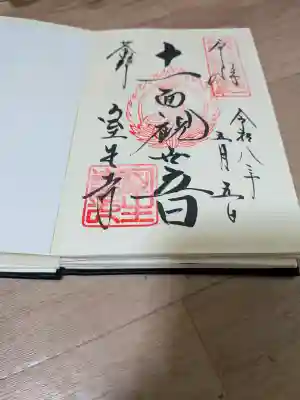 令和八年
五月五日
奉
十一面観世音
室生寺